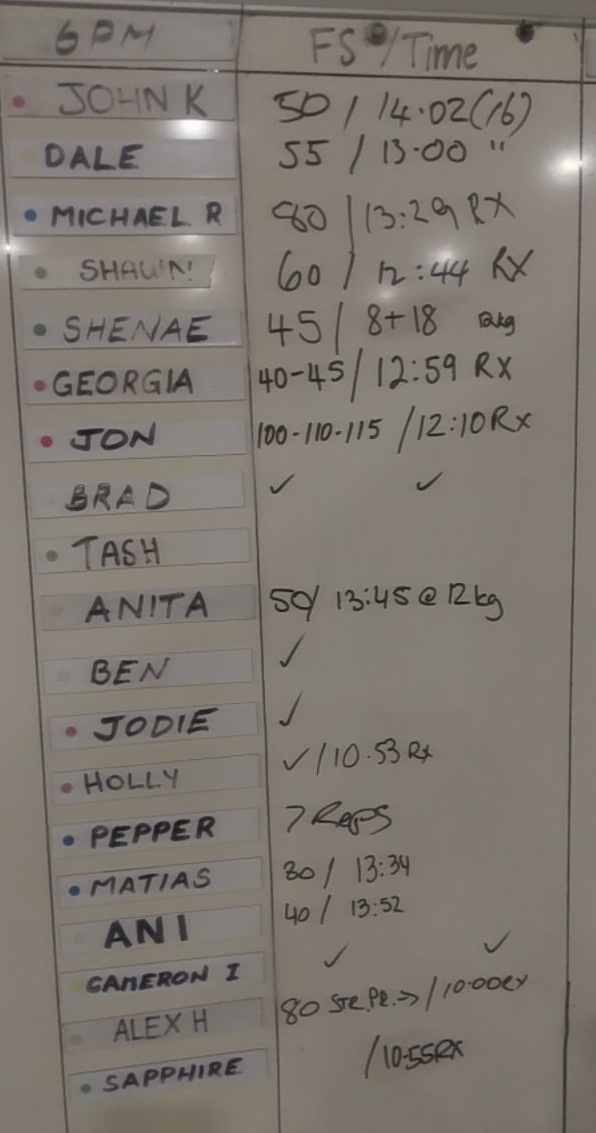 6PM FS/Time
JOHN K 50 / 14.02(16)
DALE 55 / 13.00 "
MICHAEL R 80 / 13:29 RX
SHAWN 60 / 12:44 RX
SHENAE 45 / 8+18 12kg
GEORGIA 40-45/ 12:59 RX
JON 100-110-115 / 12:10 RX
BRAD ✓ ✓
TASH
ANITA 50/ 13:45 @ 12kg
BEN ✓
JODIE ✓
HOLLY ✓/10.53 Rx
PEPPER 7 Reps
MATIAS 80 / 13:34
ANI 40 / 13:52
CAMERON I ✓ ✓
ALEX H 80 / 10:00RX
SAPPHIRE /10:55RX